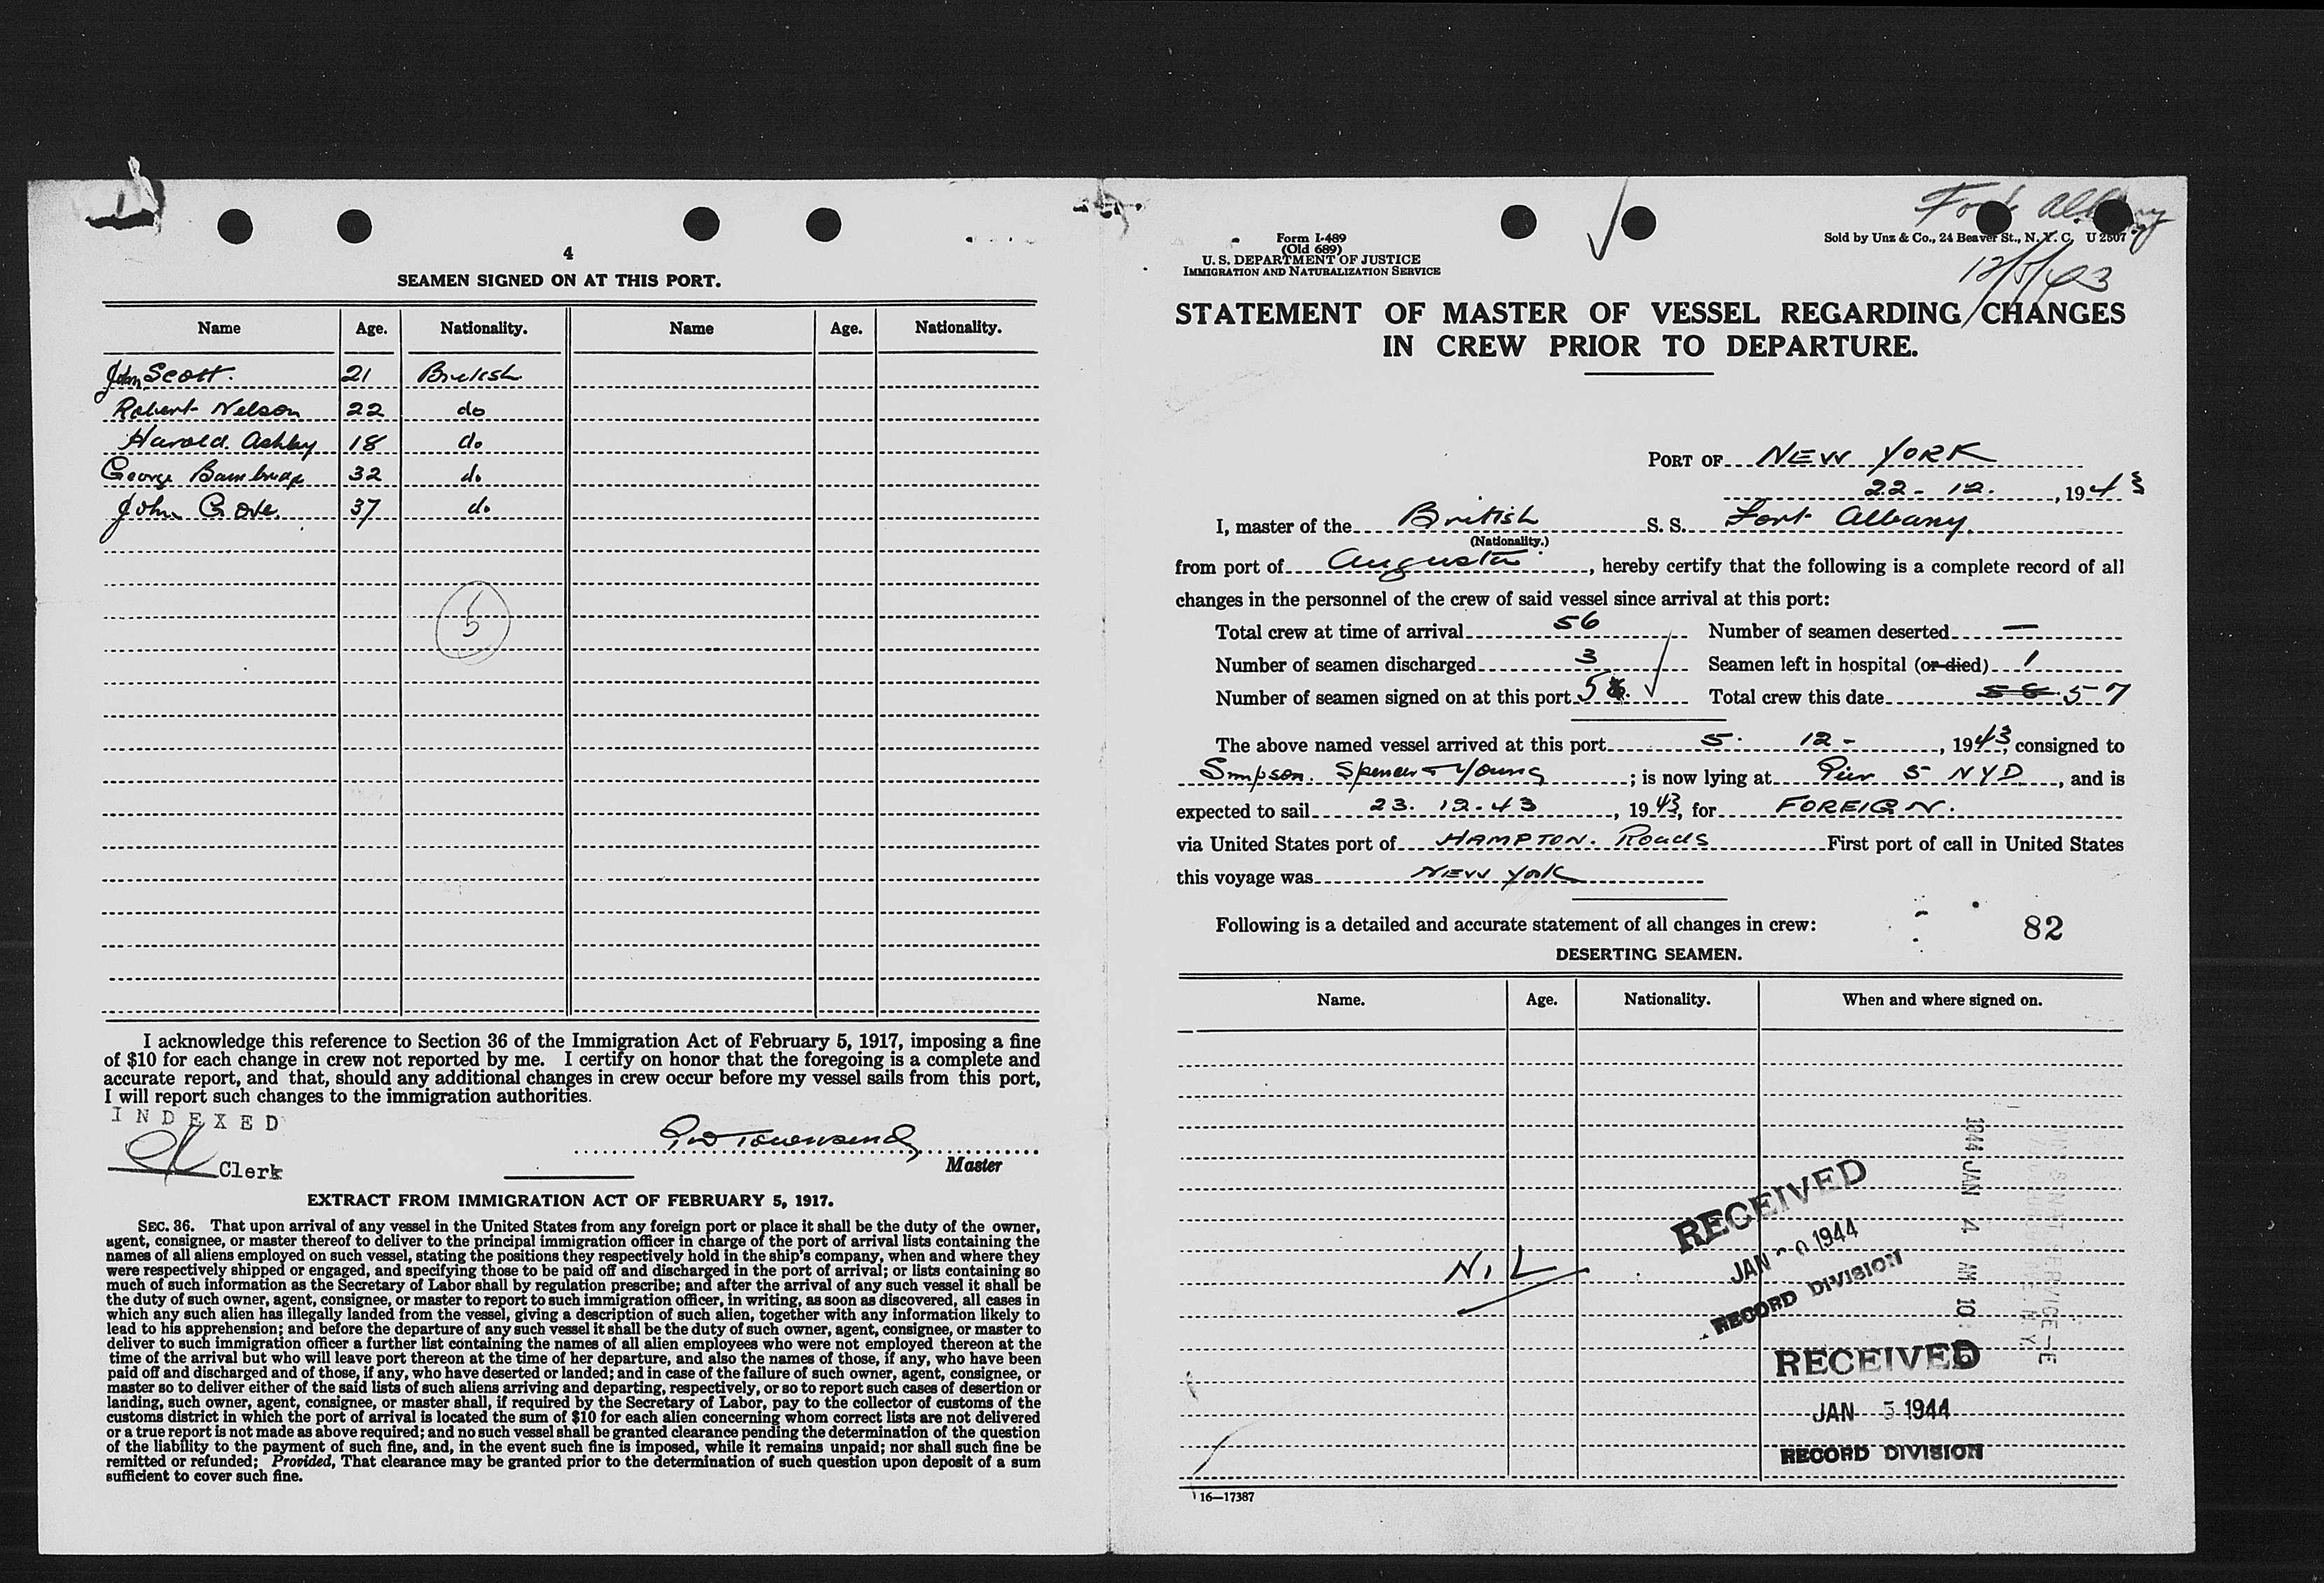 4
SEAMEN SIGNED ON AT THIS PORT.
Name Age. Nationality. Name Age. Nationality.
John Scott. 21 British
Robert Nelson 22 do
Harold. Ashby 18 do
George 32 do
John 37 do
5
I acknowledge this reference to Section 36 of the Immigration Act of February 5, 1917, imposing a fine
of $10 for each change in crew not reported by me. I certify on honor that the foregoing is a complete and
accurate report, and that, should any additional changes in crew occur before my vessel sails from this port,
I will report such changes to the immigration authorities.
INDEXED
Clerk
Townsend
Master
EXTRACT FROM IMMIGRATION ACT OF FEBRUARY 5, 1917.
SEC. 36. That upon arrival of any vessel in the United States from any foreign port or place it shall be the duty of the owner,
agent, consignee, or master thereof to deliver to the principal immigration officer in charge of the port of arrival lists containing the
names of all aliens employed on such vessel, stating the positions they respectively hold in the ship's company, when and where they
were respectively shipped or engaged, and specifying those to be paid off and discharged in the port of arrival; or lists containing so
much of such information as the Secretary of Labor shall by regulation prescribe; and after the arrival of any such vessel it shall be
the duty of such owner, agent, consignee, or master to report to such immigration officer, in writing, as soon as discovered, all cases in
which any such alien has illegally landed from the vessel, giving a description of such alien, together with any information likely to
lead to his apprehension; and before the departure of any such vessel it shall be the duty of such owner, agent, consignee, or master to
deliver to such immigration officer a further list containing the names of all alien employees who were not employed thereon at the
time of the arrival but who will leave port thereon at the time of her departure, and also the names of those, if any, who have been
paid off and discharged and of those, if any, who have deserted or landed; and in case of the failure of such owner, agent, consignee, or
master so to deliver either of the said lists of such aliens arriving and departing, respectively, or so to report such cases of desertion or
landing, such owner, agent, consignee, or master shall, if required by the Secretary of Labor, pay to the collector of customs of the
customs district in which the port of arrival is located the sum of $10 for each alien concerning whom correct lists are not delivered
or a true report is not made as above required; and no such vessel shall be granted clearance pending the determination of the question
of the liability to the payment of such fine, and, in the event such fine is imposed, while it remains unpaid; nor shall such fine be
remitted or refunded; Provided, That clearance may be granted prior to the determination of such question upon deposit of a sum
sufficient to cover such fine.
Fort Albany
Form I-489
(Old 689)
U. S. DEPARTMENT OF JUSTICE
IMMIGRATION AND NATURALIZATION SERVICE
Sold by Unz & Co., 24 Beaver St., N. Y. C. U 2507
12/5/43
STATEMENT OF MASTER OF VESSEL REGARDING CHANGES
IN CREW PRIOR TO DEPARTURE.
PORT OF NEW YORK
22-12. , 1943
I, master of the British S. S. Fort Albany
(Nationality.)
from port of Augusta , hereby certify that the following is a complete record of all
changes in the personnel of the crew of said vessel since arrival at this port:
Total crew at time of arrival 56 Number of seamen deserted —
Number of seamen discharged 3 Seamen left in hospital (or died) 1
Number of seamen signed on at this port 5 Total crew this date 58 57
The above named vessel arrived at this port 5. 12- , 1943, consigned to
Simpson. Spencer & Young ; is now lying at Pier 5 NYD , and is
expected to sail 23. 12. 43 , 1943, for FOREIGN.
via United States port of HAMPTON. Roads First port of call in United States
this voyage was NEW York
Following is a detailed and accurate statement of all changes in crew:
82
DESERTING SEAMEN.
Name. Age. Nationality. When and where signed on.
NIL
RECEIVED
JAN 1944
RECORD DIVISION
1944 JAN 4 AM 10
RECEIVED
JAN 5 1944
RECORD DIVISION
16—17387